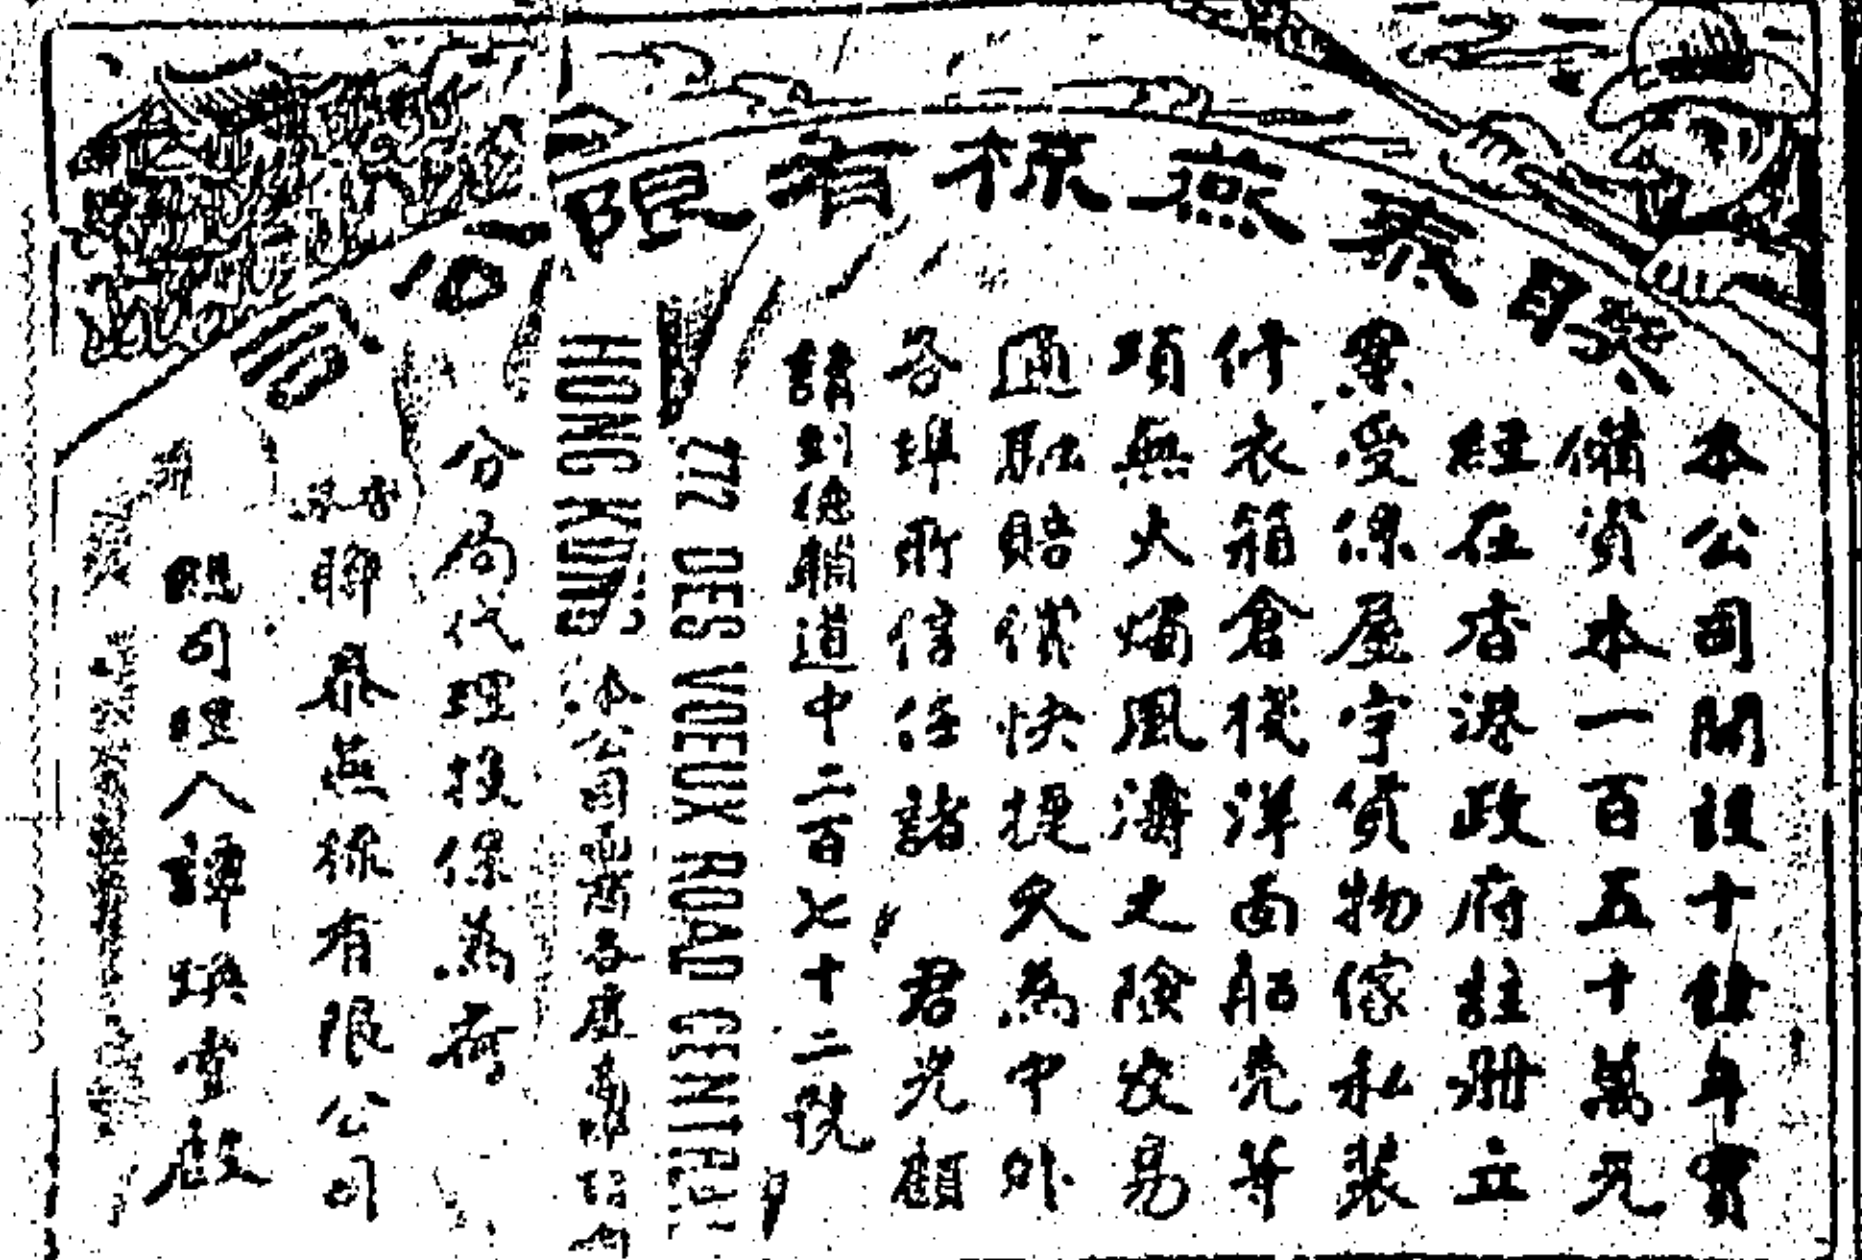 聯泰燕梳有限公司
本公司開設十餘年實
備資本一百五十萬元
經在香港政府註冊立
案受保屋宇貨物傢私裝
修衣箱倉棧洋面船壳等
項無火燭風濤之險交易
通融賠償快捷久為中外
各埠所信任諸 君光顧
請到德輔道中二百七十二號
272 DES VOEUX ROAD CENTRAL
HONG KONG
本公司
分局代理投保為荷
香 聯泰燕梳有限公司
司理人譚煥堂啟